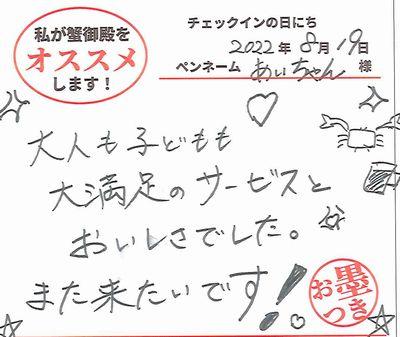 私が蟹御殿を
オススメ
します！
チェックインの日にち
2022年8月19日
ペンネーム あいちゃん 様
大人も子どもも
大満足のサービスと
おいしさでした。
また来たいです！
お墨つき